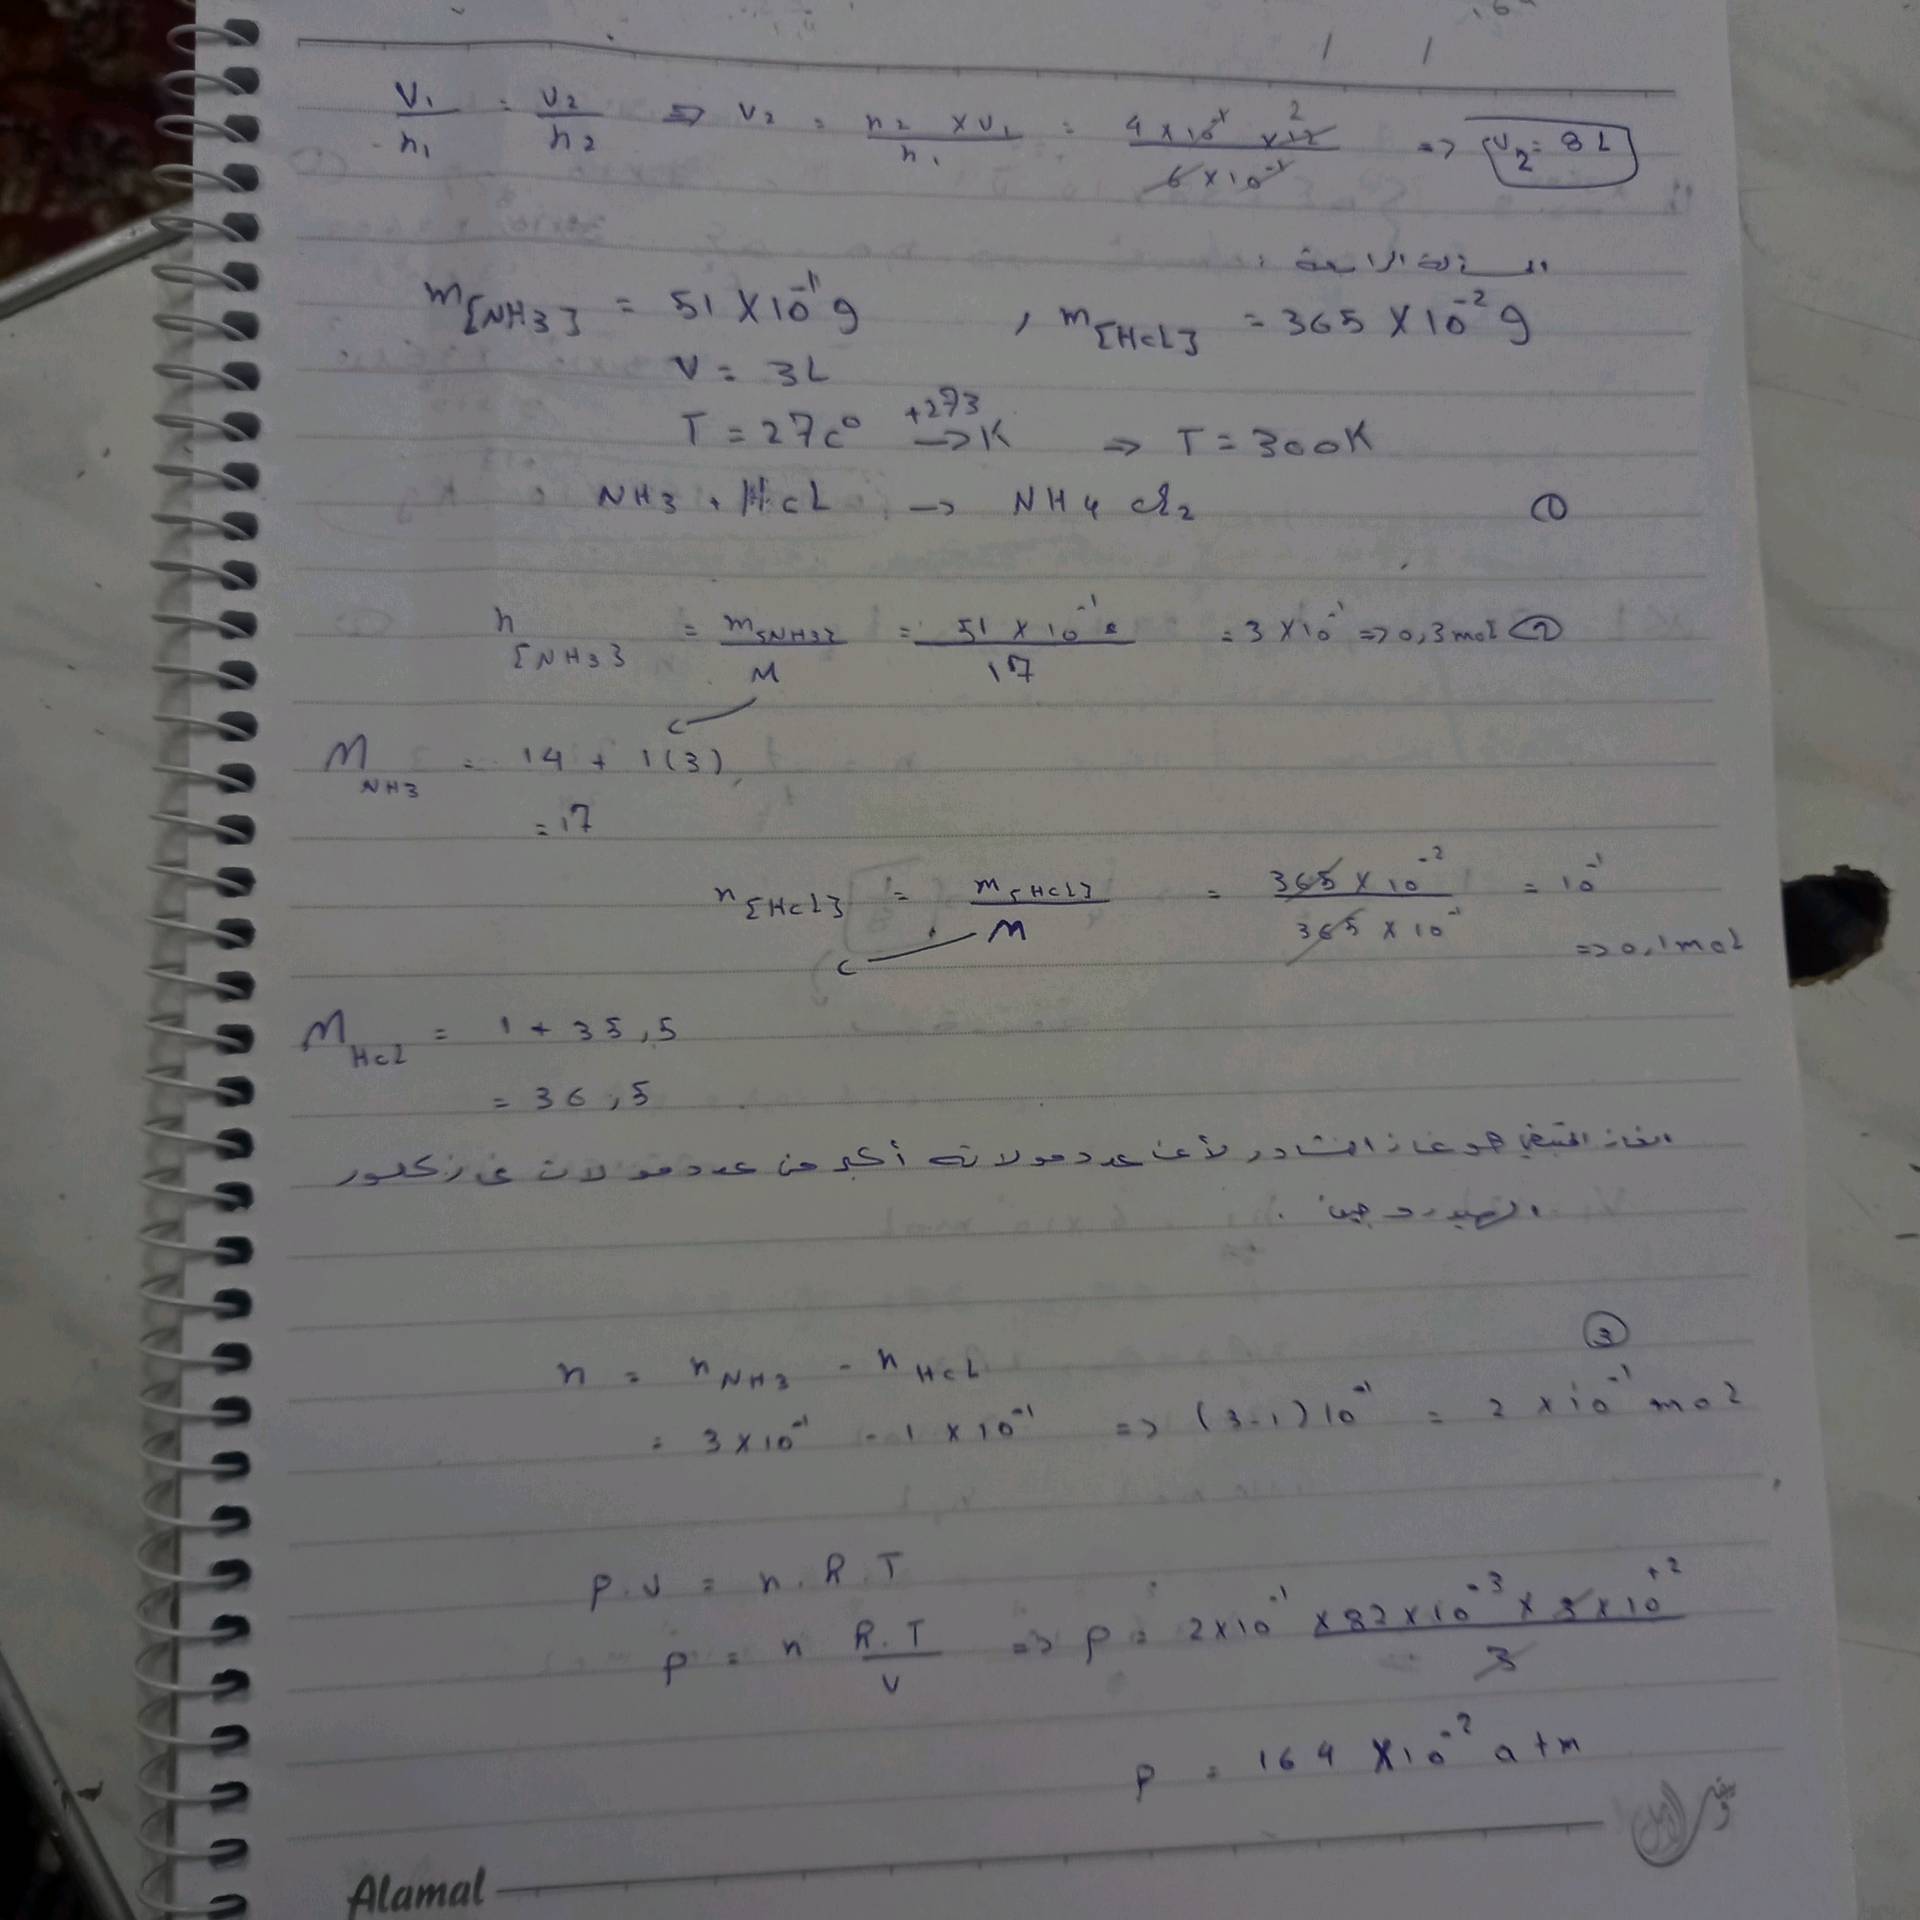 V₁/n₁ = V₂/n₂ => V₂ = n₂ × V₁/n₁ = 4 × 10⁻¹ × 12/6 × 10⁻¹ 2 => V₂ = 8 L
المسألة الرابعة :
m[NH3] = 51 × 10⁻¹ g , m[HcL] = 365 × 10⁻² g
V = 3L
T = 27c° +273 → K => T = 300K
NH3 + HcL → NH4 cl₂ ①
n[NH3] = m[NH3]/M = 51 × 10⁻¹/17 = 3 × 10⁻¹ => 0,3 mol ②
M NH3 = 14 + 1(3)
= 17
n[Hcl] = m[Hcl]/M = 365 × 10⁻²/365 × 10⁻¹ = 10⁻¹
=> 0,1 mol
M Hcl = 1 + 35,5
= 36,5
الغاز المتبقي هو غاز النشادر لأن عدد مولاته أكبر من عدد مولات غاز كلور
الهيدروجين .
③
n = n NH3 - n HcL
= 3 × 10⁻¹ - 1 × 10⁻¹ => (3-1) 10⁻¹ = 2 × 10⁻¹ mol
P.V = n.R.T
P = n R.T/V => P = 2×10⁻¹ × 82×10⁻³ × 3×10⁺²/3
P = 164 × 10⁻² atm
Alamal